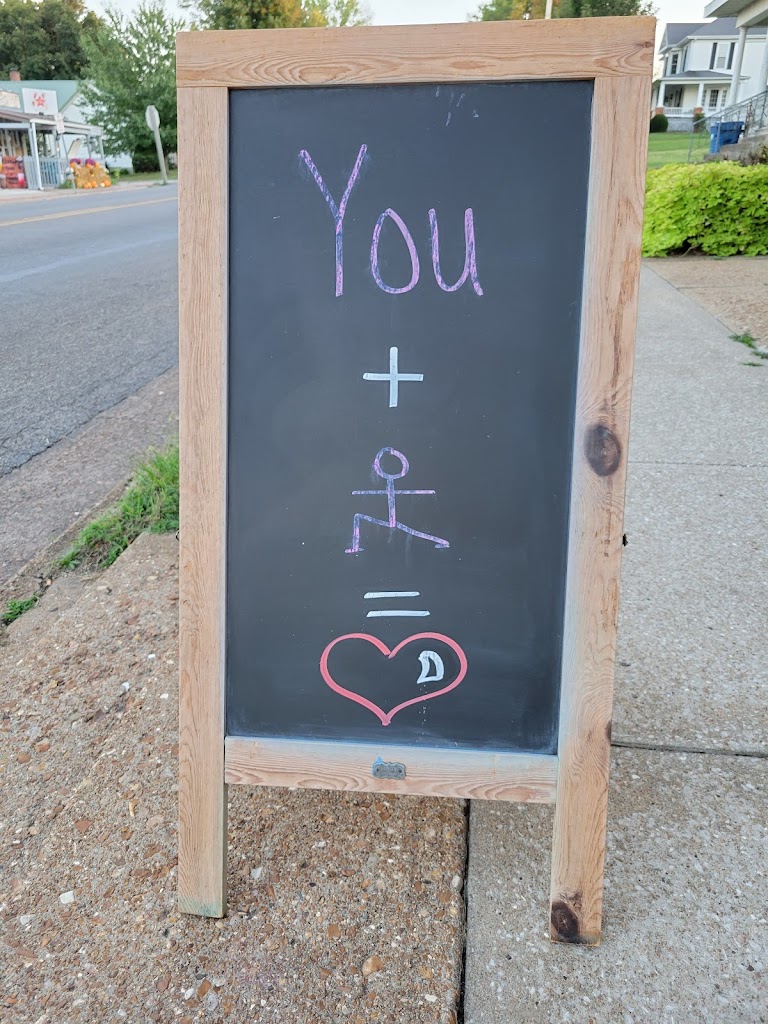 You
+
=